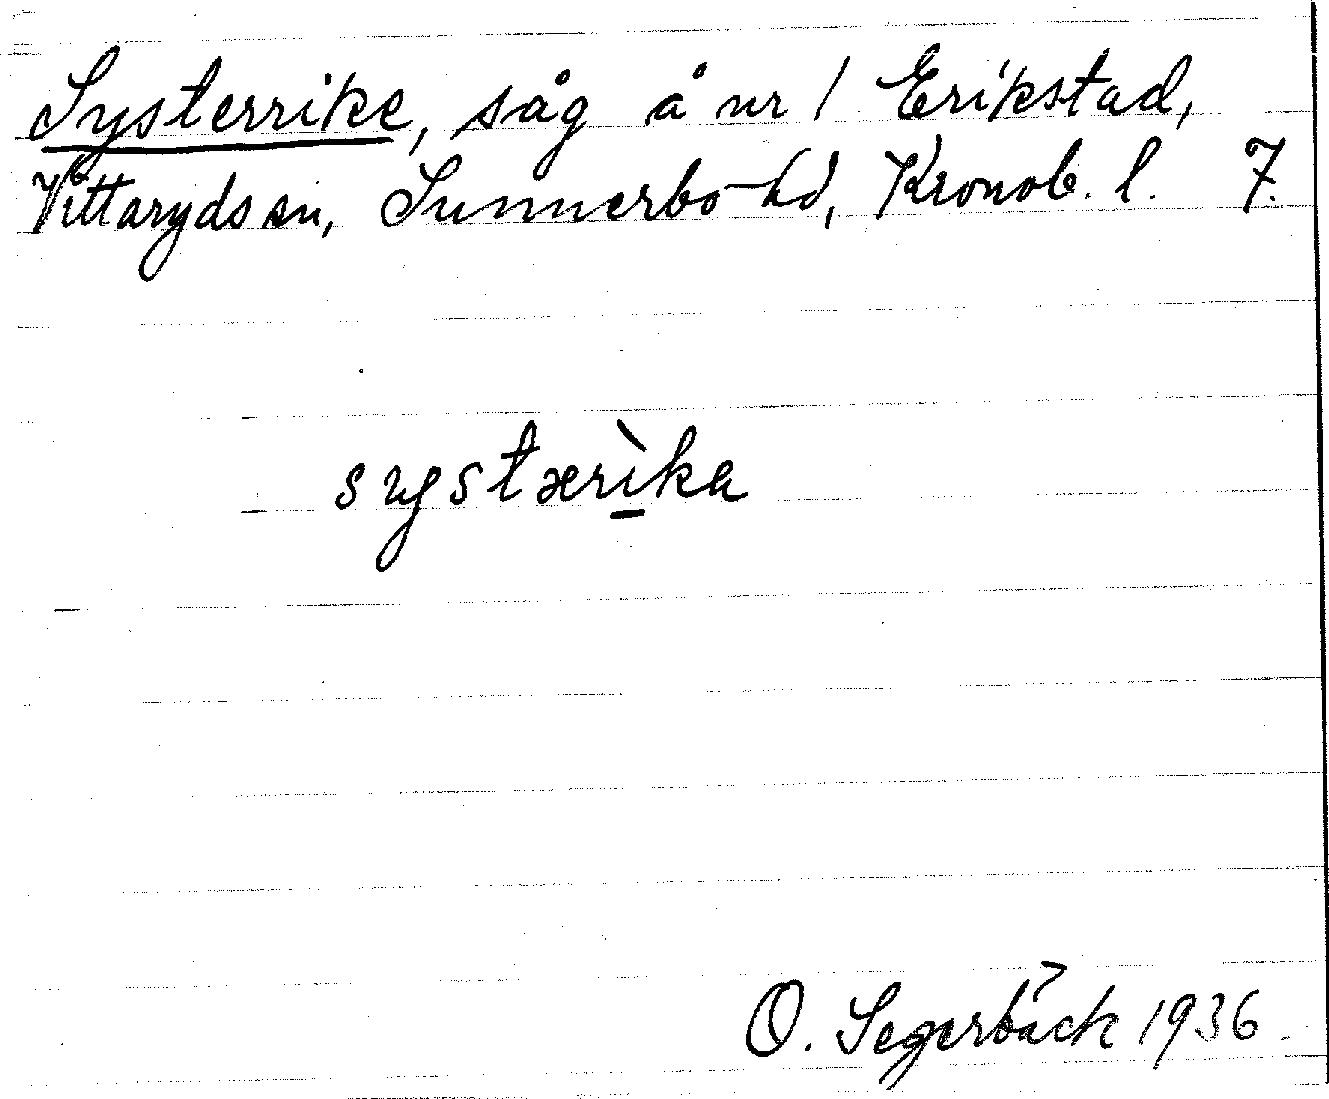 Systerrike, såg å nr 1 Erikstad,
Vittaryds sn, Sunnerbo hd, Kronob. l. 7.
systærìka
O. Segerbäck 1936.